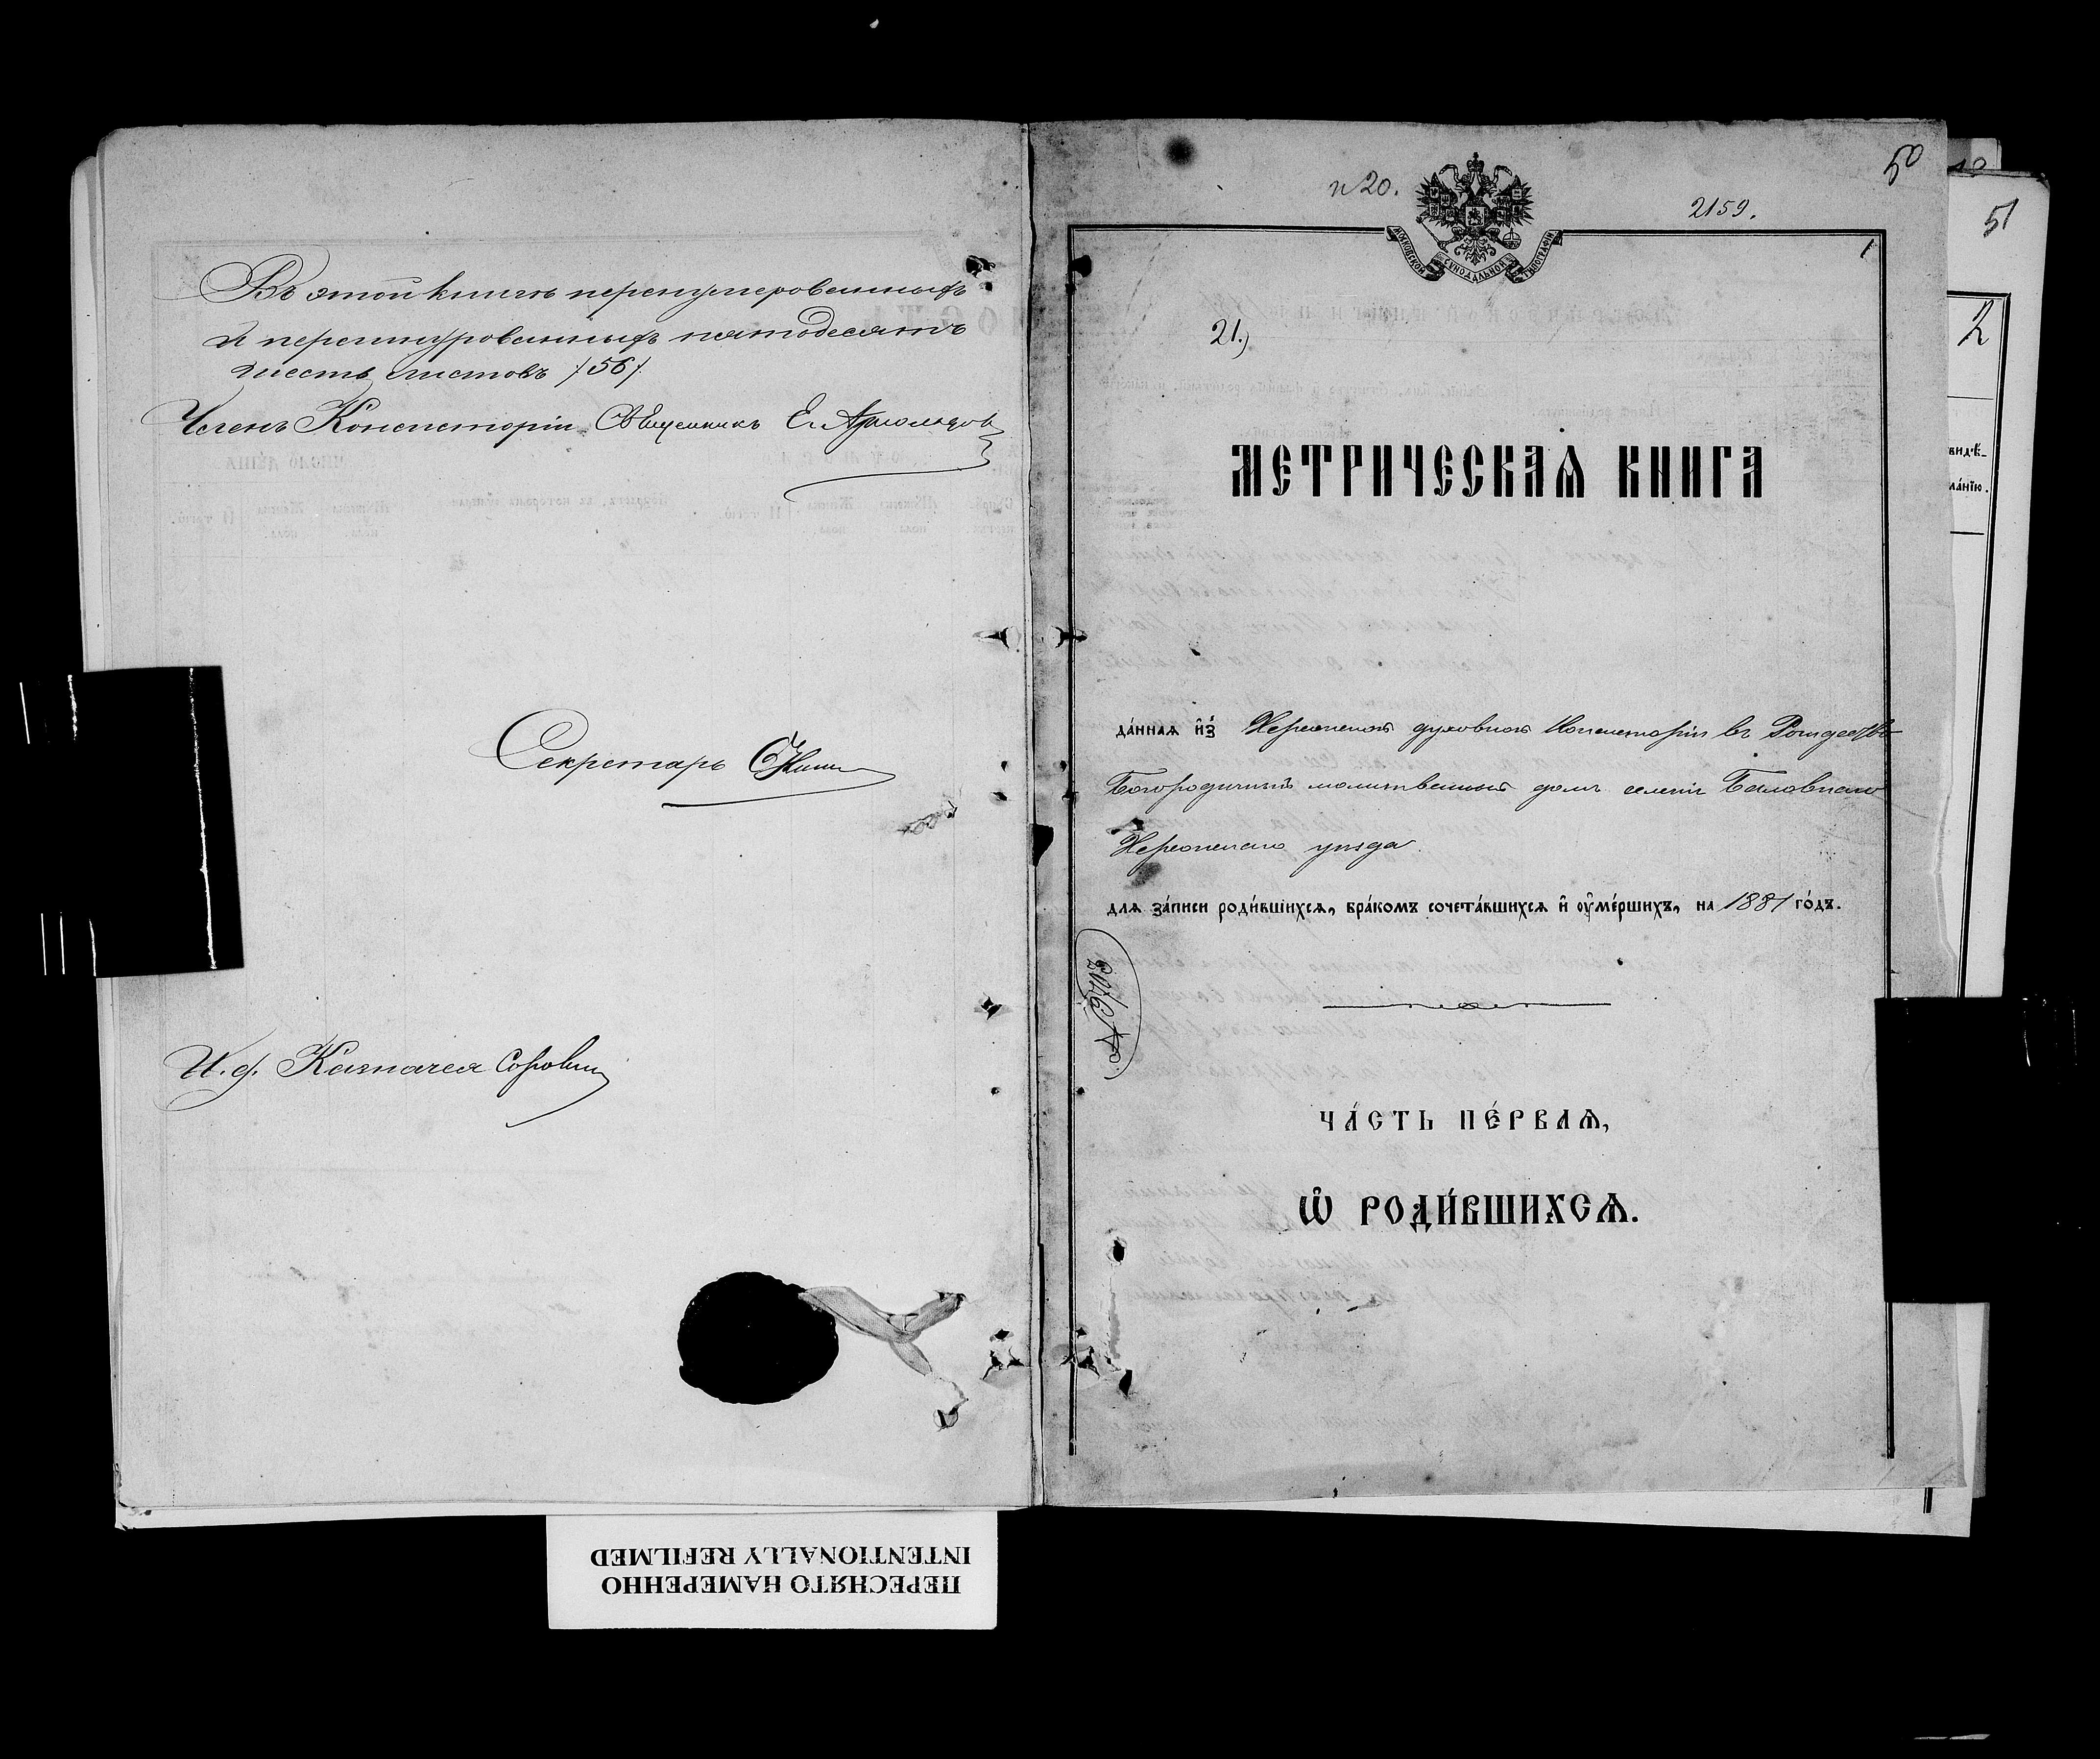 Въ этой книгѣ перенумерованныхъ
и перешнурованныхъ пятодесятъ
шесть листовъ /56/.
Членъ Консисторіи Священникъ Е.
Секретарь
И. д. Казначея
50
51
2
n 20.
2159.
1
МОСКОВСКОЙ СУНОДАЛЬНОЙ ТИПОГРАФІИ
21.)
МЕТРИЧЕСКАѦ КНИГА
да́ннаѧ и҆з̾ Херсонской духовной Консисторіи въ Рождество-
Богородичный молитвенный домъ селенія Баловнаго
Херсонскаго уѣзда.
для за́писи роди́вшихсѧ, бра́комъ сочета́вшихсѧ и҆ ᲂу҆ме́ршихъ, на 1881 го́дъ.
№ 5703
ЧА́СТЬ ПЕ́РВАѦ,
Ѡ҆ РОДИ́ВШИХСѦ.
видѣ-
ла́нїю.
ПЕРЕСНЯТО НАМЕРЕННО
INTENTIONALLY REFILMED